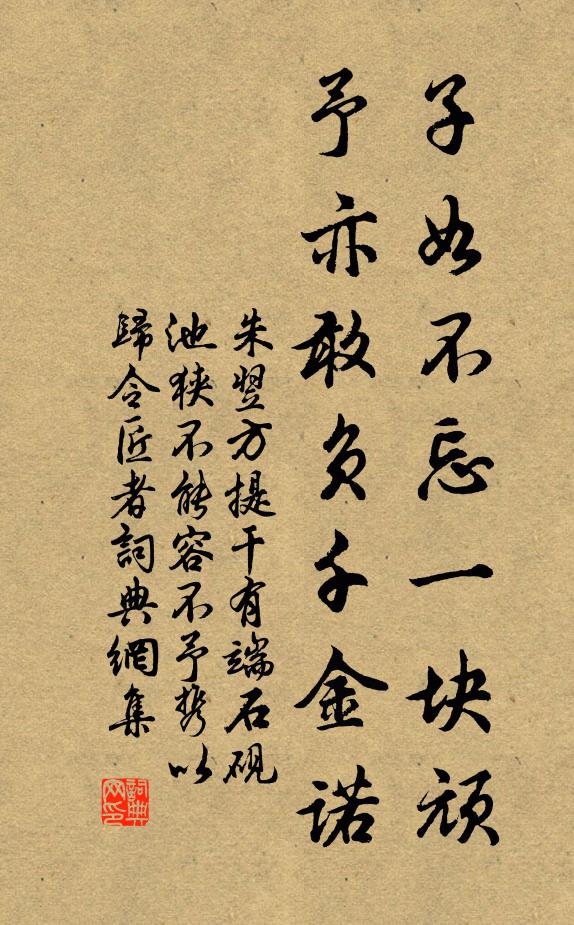 子如不忘一块顽
予亦敢负千金诺
朱翌方提干有端石砚
池狭不能容不予携以
歸令匠者詞典網集
詞典网印